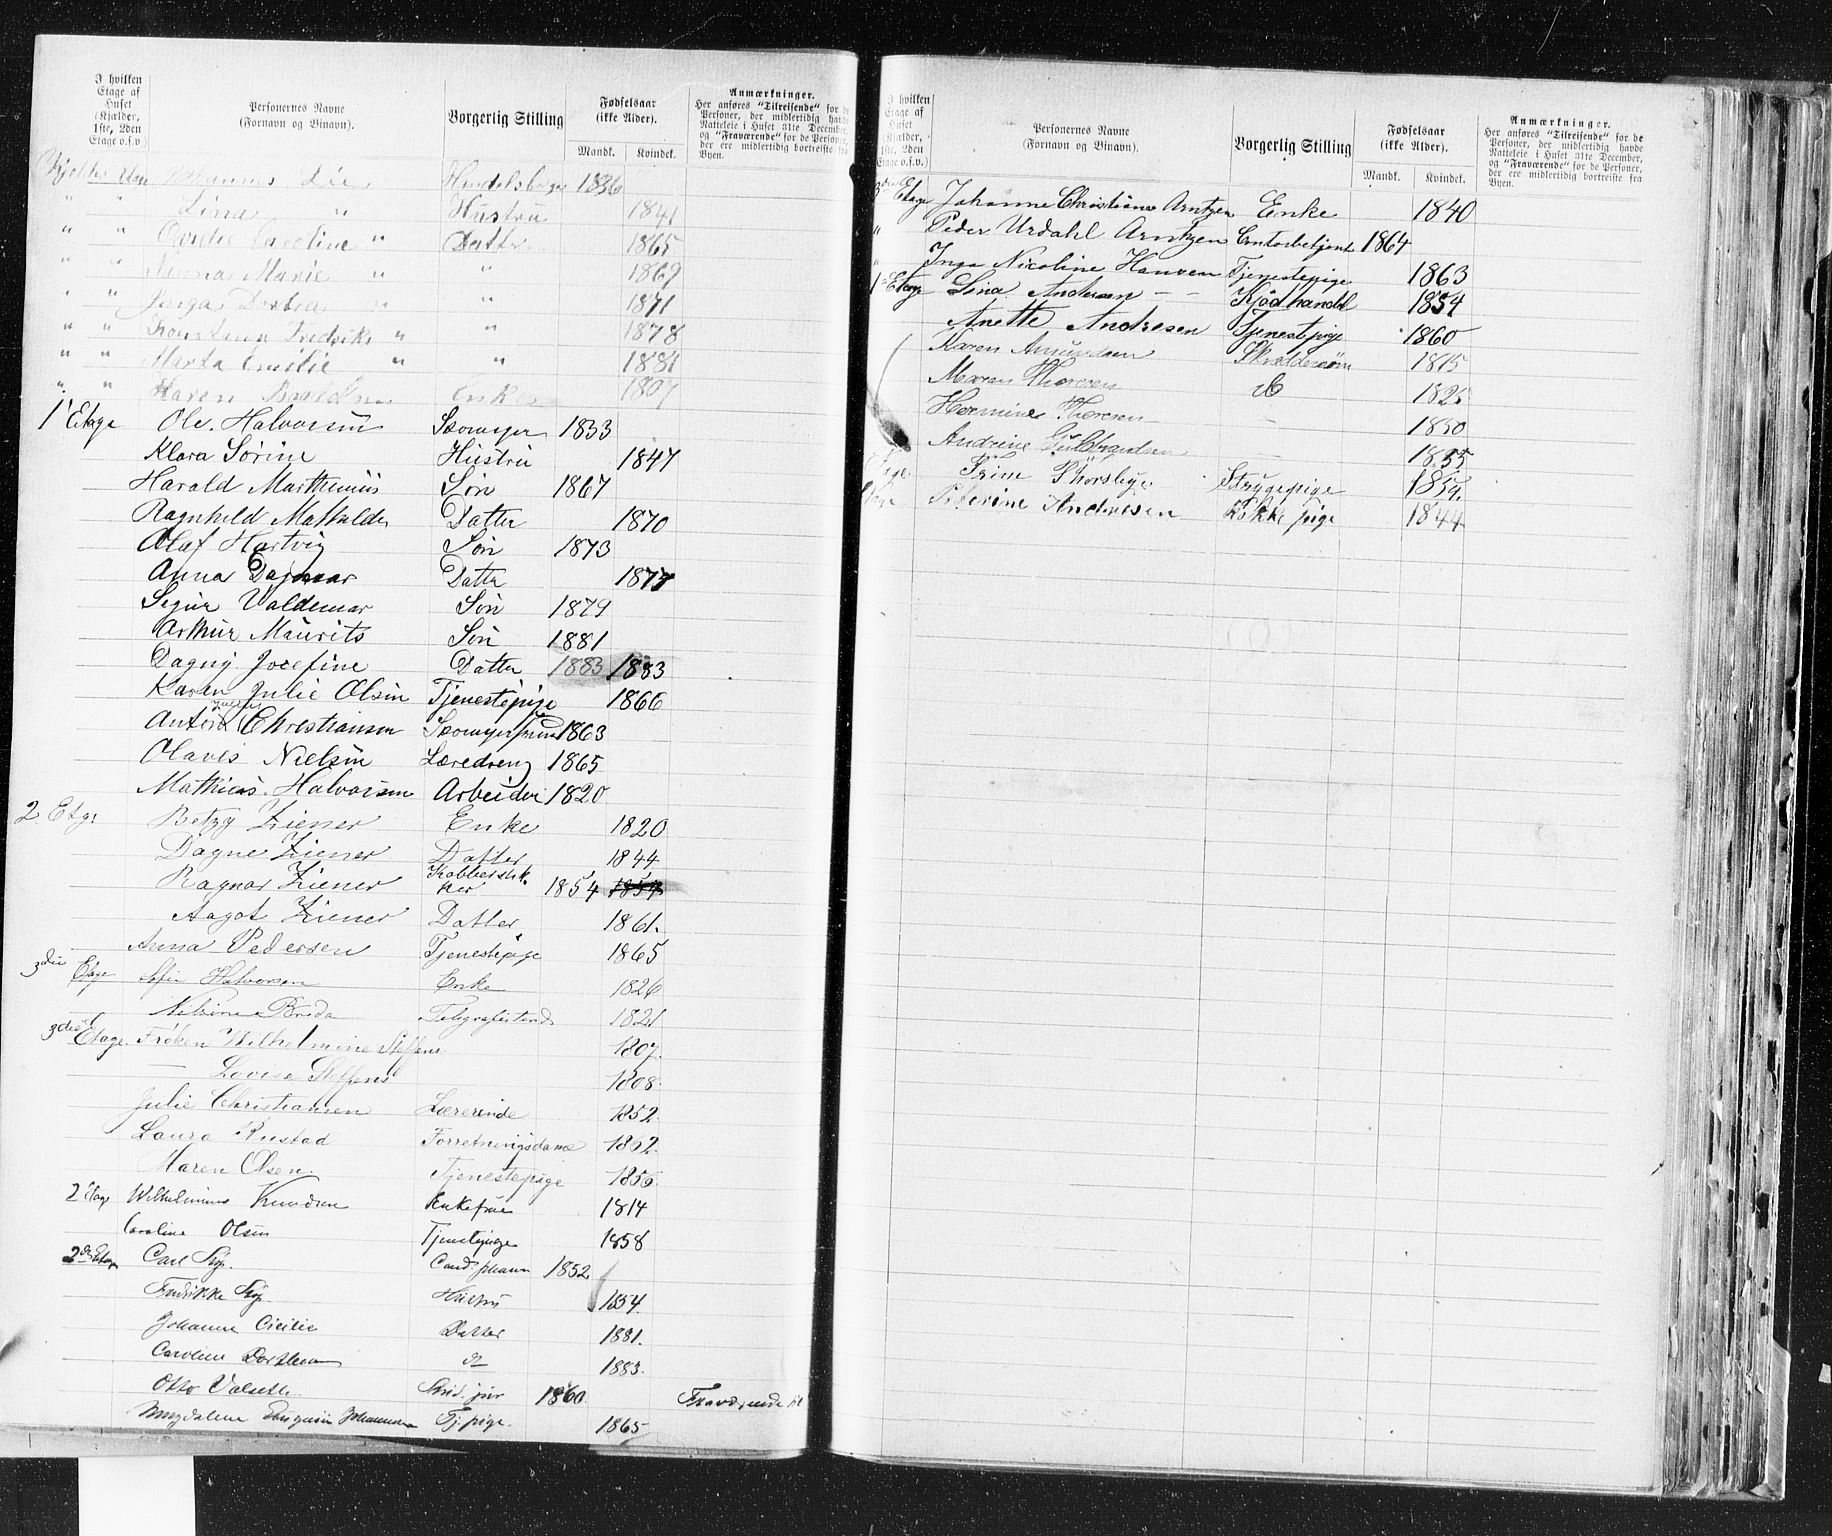 I hvilken
Etage af
Huset
(Kjælder,
1ste, 2den
Etage o.s.v)
Personernes Navne
(Fornavn og Binavn).
Borgerlig Stilling
Fødselsaar
(ikke Alder).
Mandk. Kvindek.
Anmærkninger.
Her anføres "Tilreisende" for de
Personer, der midlertidig havde
Natteleie i Huset 31te December,
og "Fraværende" for de Personer,
der ere midlertidig bortreiste fra
Byen.
Lie 1836
" " Lina " Hustru 1841
" " Caroline " Datter 1865
" " Marie " " 1869
" " Inga " 1871
" " Fredrikke " " 1878
" " Marta Emilie " " 1881
" " Karen Enke
1 Etage Ole Halvorsen 1833
Klara Sørine Hustru 1847
Harald Marthinius Søn 1867
Ragnhild Mathilde Datter 1870
Olaf Hartvig Søn 1873
Anna Dagmar Datter 1877
Sigur Valdemar Søn 1879
Arthur Maurits Søn 1881
Dagny Josefine Datter 1883 1883
Karen Julie Olsen Tjenestepige 1866
Anton Christiansen 1863
Olaves Nielsen Læredreng 1865
Mathias Halvorsen Arbeider 1820
2 Etge Betzy Ziener Enke 1820
Dagne Ziener Datter 1844
Ragnar Ziener Kobberstikker 1854 1854
Aagot Ziener Datter 1861.
Anna Pedersen Tjenestepige 1865
3die Etage Halvorsen Enke 1826
Breda 1821
3die Etage. Frøken Wilhelmine Steffens 1807.
— Lovise Steffens 1808.
Julie Christiansen Lærerinde 1852.
Laura Rustad Forretningsdame 1862.
Maren Olsen. Tjenestepige 1856.
2 Etage Wilhelmine Knudsen Enkefrue 1814
Caroline Olsen Tjenestepige 1858
2den Etage Carl Cand. pharm 1852
Fredrikke Hustru 1854.
Johanne Cicilie Datter 1881.
Caroline Dorthea 1883.
Otto Valseth Stud. jur 1860. Fraværende
Magdalene Johannesen Tj.pige. 1865
I hvilken
Etage af
Huset
(Kjælder,
1ste, 2den
Etage o.s.v.)
Personernes Navne
(Fornavn og Binavn).
Borgerlig Stilling
Fødselsaar
(ikke Alder).
Mandk. Kvindek.
Anmærkninger.
Her anføres "Tilreisende" for de
Personer, der midlertidig havde
Natteleie i Huset 31te December,
og "Fraværende" for de Personer,
der ere midlertidig bortreiste fra
Byen.
Etage Johanne Christiane Arntzen Enke 1840
" Peder Urdahl Arntzen Contorbetjent 1864
" Inga Nicoline Hansen Tjenestepige 1863
1 Etage Lina Andersen — — Kjødhandel 1854
Anette Andresen Tjenestepige 1860
Karen Amundsen 1815
Maren Thoresen
Hermine Thoresen
Andrine Guldbrandsen
Trine Strygepige 1854.
Petrine Andresen Kokkepige 1844